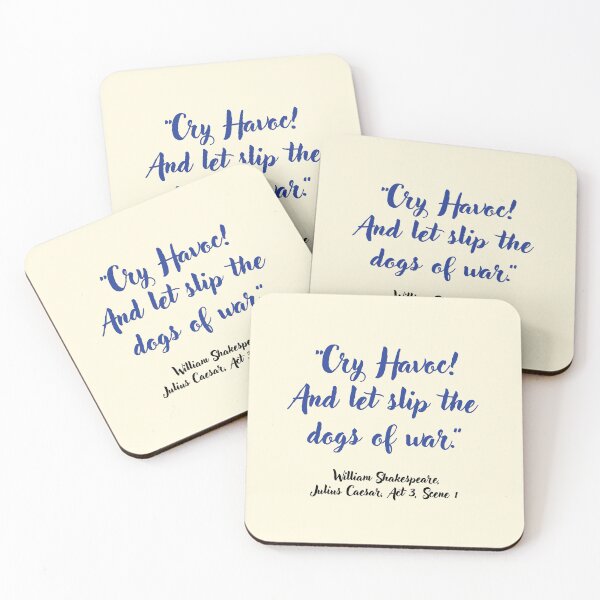 "Cry Havoc!
And let slip the
war."
"Cry Havoc!
And let slip the
dogs of war."
"Cry Havoc!
And let slip the
dogs of war."
William Shakespe
Julius Caesar, Act
"Cry Havoc!
And let slip the
dogs of war."
William Shakespeare,
Julius Caesar, Act 3, Scene 1